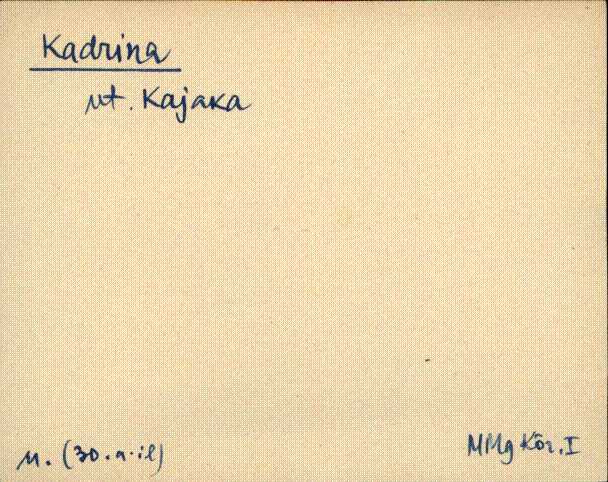 Kadrina
vt. Kajaka
M. (30.a-il)
MMg Kõr. I